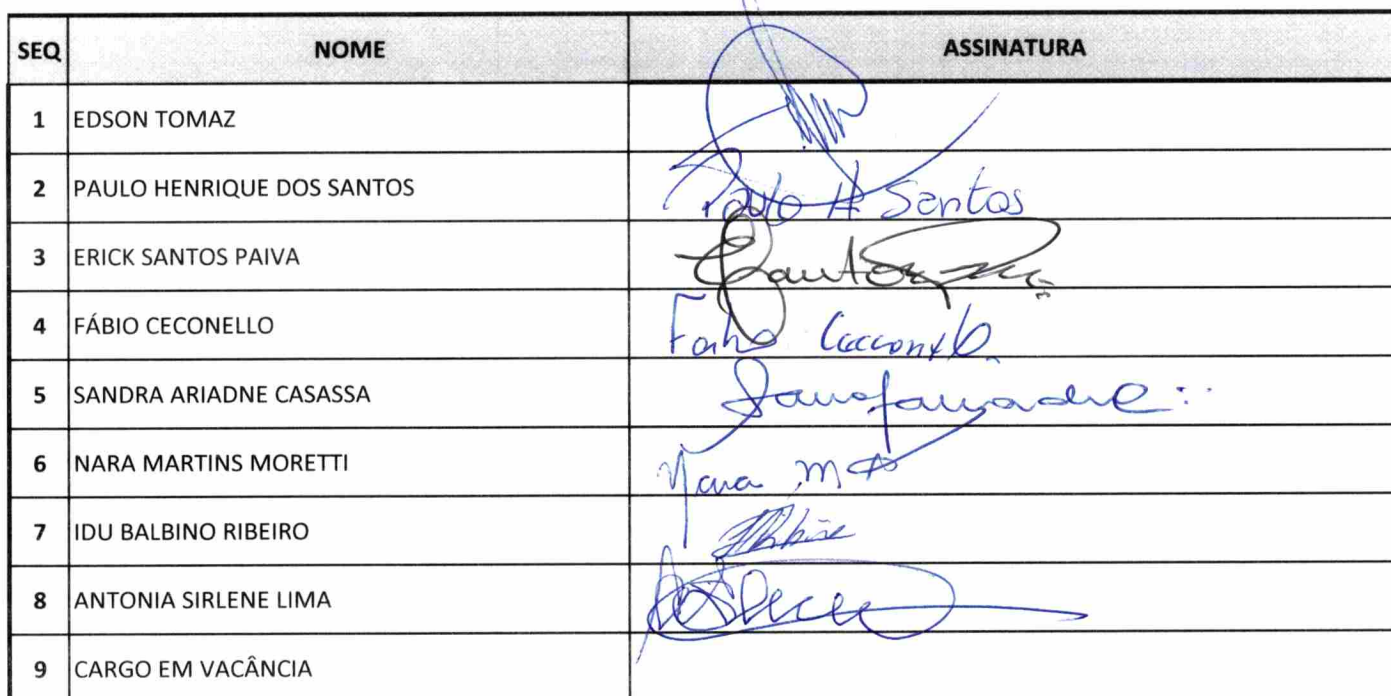 SEQ NOME ASSINATURA
1 EDSON TOMAZ
2 PAULO HENRIQUE DOS SANTOS Paulo H Santos
3 ERICK SANTOS PAIVA
4 FÁBIO CECONELLO
5 SANDRA ARIADNE CASASSA
6 NARA MARTINS MORETTI Nara
7 IDU BALBINO RIBEIRO
8 ANTONIA SIRLENE LIMA
9 CARGO EM VACÂNCIA